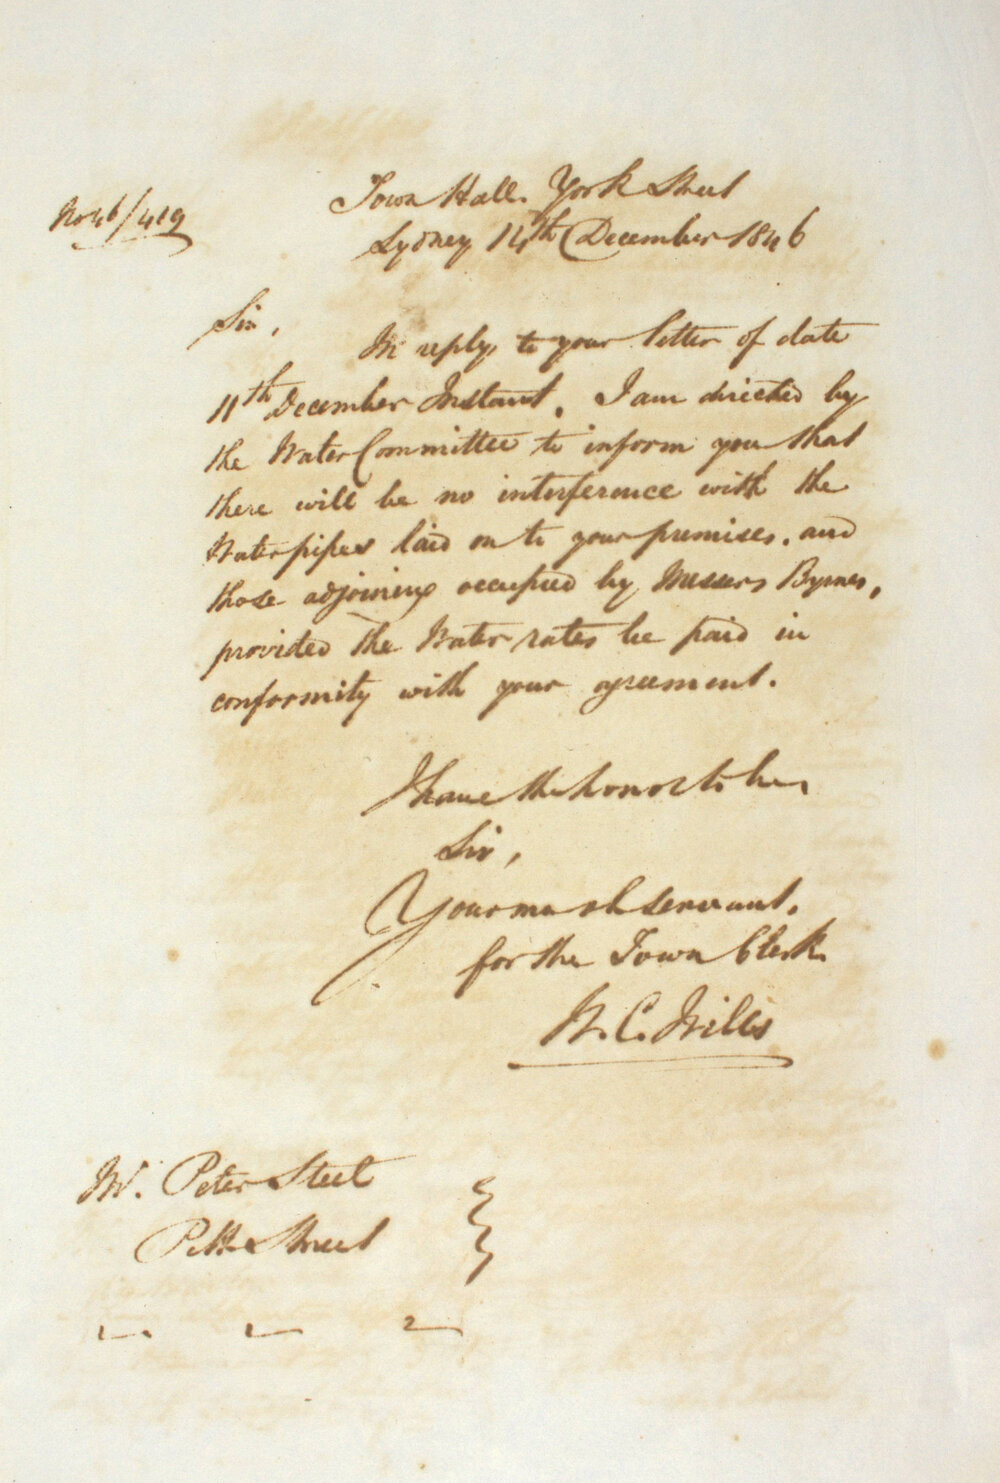 No 46/419
Town Hall. York Street
Sydney 14th December 1846
Sir,
In reply to your letter of date
11th December Instant. I am directed by
the Water Committee to inform you that
there will be no interference with the
Waterpipes laid on to your premises. and
those adjoining occupied by Messers Byrnes,
provided the Water rates be paid in
conformity with your agreement.
I have the honor to be,
Sir,
Your mo ob servant.
for the Town Clerk
W. C. Wills
Mr. Peter Steel
Pitt Street